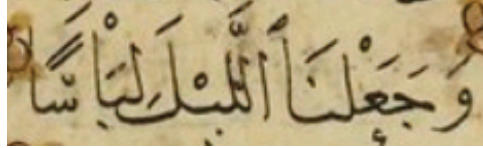 وَجَعَلْنَا ٱللَّيْلَ لِبَاسًا